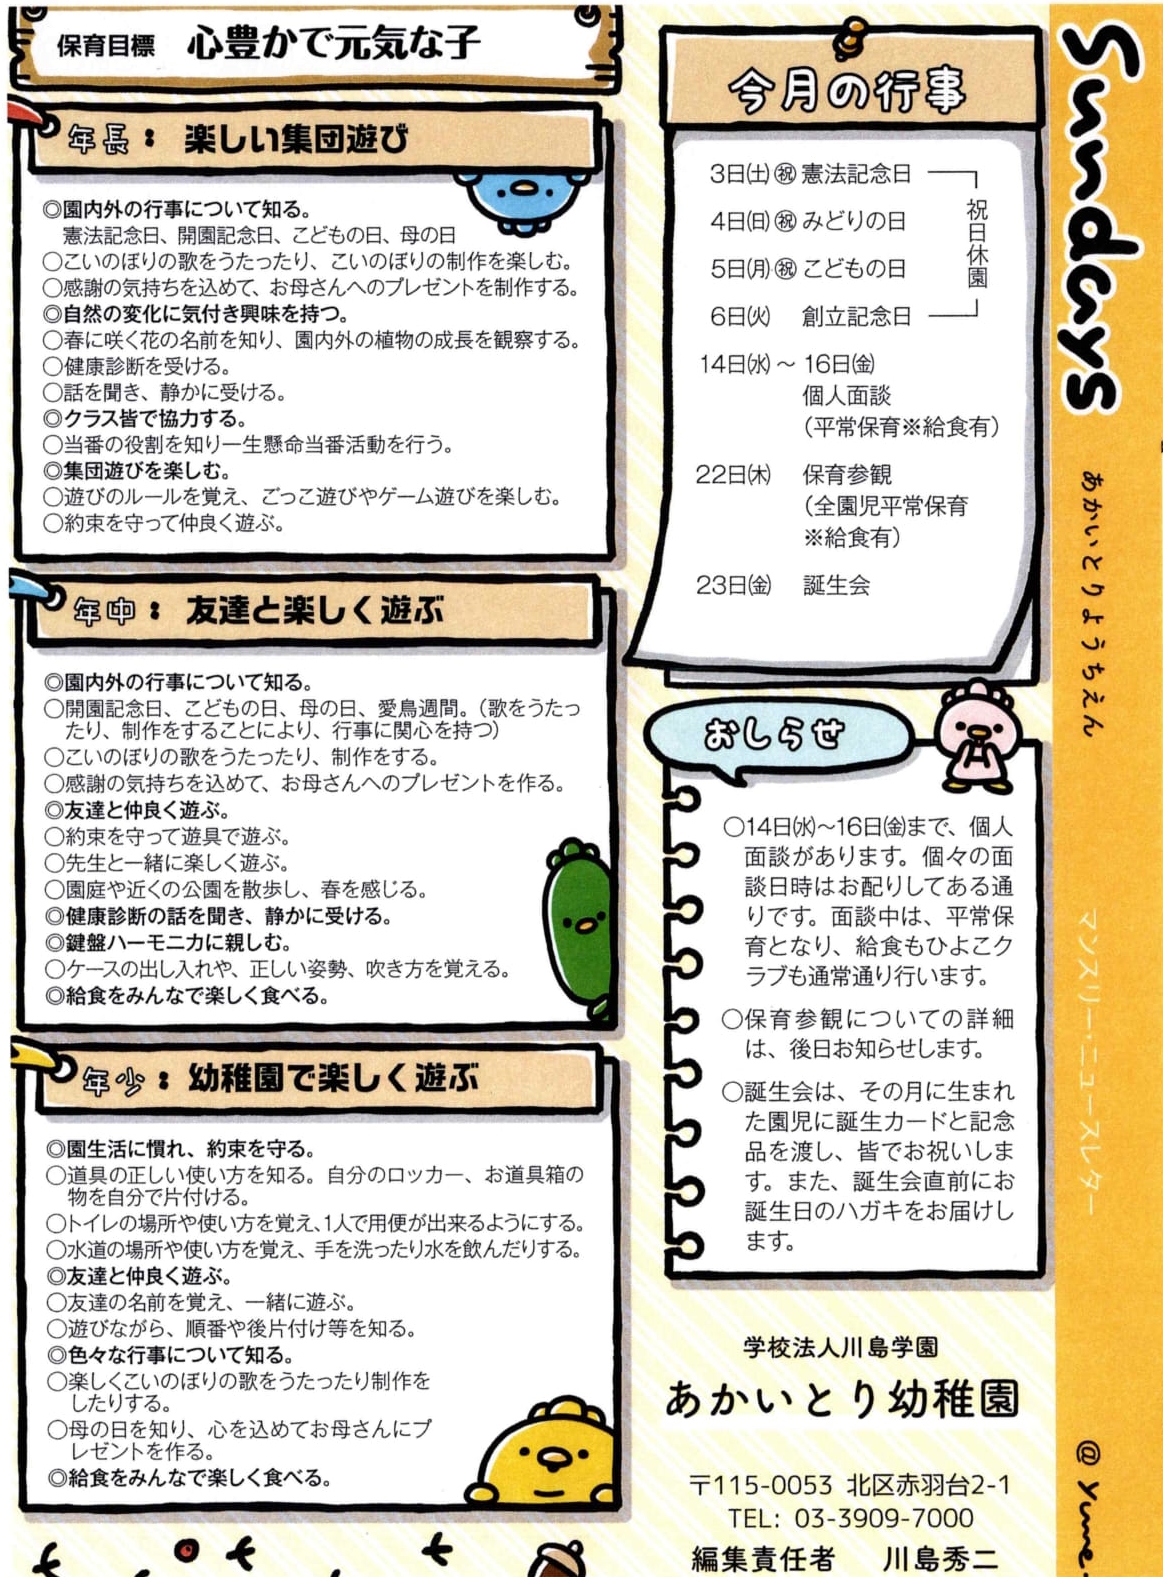 保育目標 心豊かで元気な子
年長：楽しい集団遊び
◎園内外の行事について知る。
憲法記念日、開園記念日、こどもの日、母の日
○こいのぼりの歌をうたったり、こいのぼりの制作を楽しむ。
○感謝の気持ちを込めて、お母さんへのプレゼントを制作する。
◎自然の変化に気付き興味を持つ。
○春に咲く花の名前を知り、園内外の植物の成長を観察する。
○健康診断を受ける。
○話を聞き、静かに受ける。
◎クラス皆で協力する。
○当番の役割を知り一生懸命当番活動を行う。
◎集団遊びを楽しむ。
○遊びのルールを覚え、ごっこ遊びやゲーム遊びを楽しむ。
○約束を守って仲良く遊ぶ。
年中：友達と楽しく遊ぶ
◎園内外の行事について知る。
○開園記念日、こどもの日、母の日、愛鳥週間。（歌をうたっ
たり、制作をすることにより、行事に関心を持つ）
○こいのぼりの歌をうたったり、制作をする。
○感謝の気持ちを込めて、お母さんへのプレゼントを作る。
◎友達と仲良く遊ぶ。
○約束を守って遊具で遊ぶ。
○先生と一緒に楽しく遊ぶ。
○園庭や近くの公園を散歩し、春を感じる。
◎健康診断の話を聞き、静かに受ける。
◎鍵盤ハーモニカに親しむ。
○ケースの出し入れや、正しい姿勢、吹き方を覚える。
◎給食をみんなで楽しく食べる。
年少：幼稚園で楽しく遊ぶ
◎園生活に慣れ、約束を守る。
○道具の正しい使い方を知る。自分のロッカー、お道具箱の
物を自分で片付ける。
○トイレの場所や使い方を覚え、1人で用便が出来るようにする。
○水道の場所や使い方を覚え、手を洗ったり水を飲んだりする。
◎友達と仲良く遊ぶ。
○友達の名前を覚え、一緒に遊ぶ。
○遊びながら、順番や後片付け等を知る。
◎色々な行事について知る。
○楽しくこいのぼりの歌をうたったり制作を
したりする。
○母の日を知り、心を込めてお母さんにプ
レゼントを作る。
◎給食をみんなで楽しく食べる。
今月の行事
3日(土)㊗憲法記念日
4日(日)㊗みどりの日
5日(月)㊗こどもの日
6日(火) 創立記念日
祝日休園
14日(水)～16日(金)
個人面談
（平常保育※給食有）
22日(木) 保育参観
（全園児平常保育
※給食有）
23日(金) 誕生会
おしらせ
○14日(水)～16日(金)まで、個人
面談があります。個々の面
談日時はお配りしてある通
りです。面談中は、平常保
育となり、給食もひよこク
ラブも通常通り行います。
○保育参観についての詳細
は、後日お知らせします。
○誕生会は、その月に生まれ
た園児に誕生カードと記念
品を渡し、皆でお祝いしま
す。また、誕生会直前にお
誕生日のハガキをお届けし
ます。
学校法人川島学園
あかいとり幼稚園
〒115-0053 北区赤羽台2-1
TEL: 03-3909-7000
編集責任者 川島秀二
Sundays
あかいとりようちえん
マンスリー・ニュースレター
@ Yume-